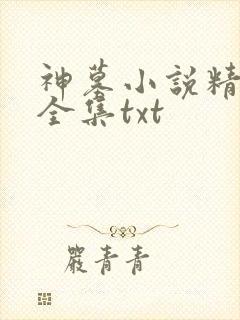 神墓小説精
全集txt
嚴青青